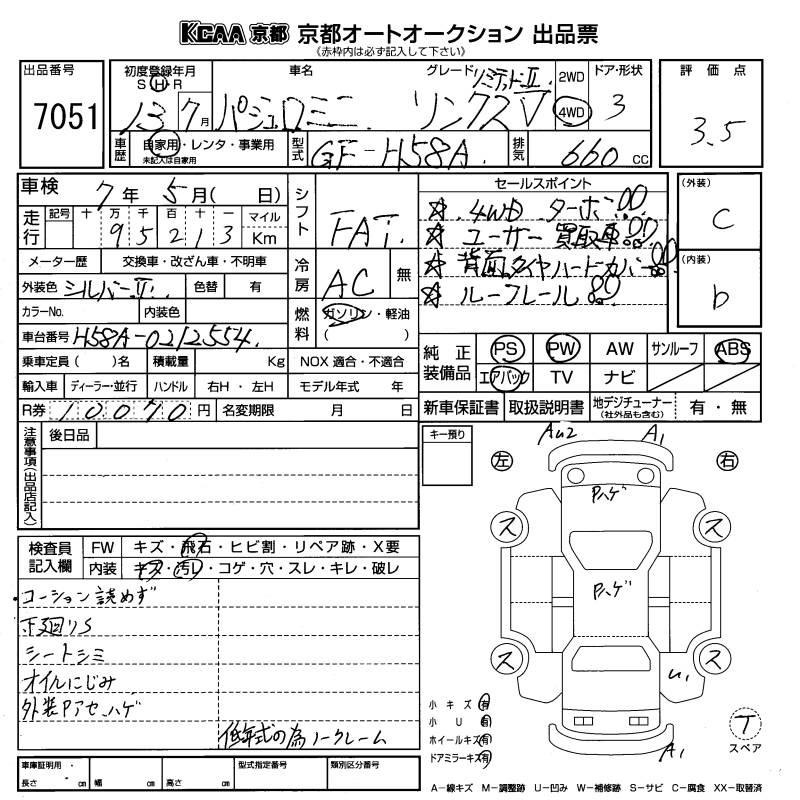 KCAA 京都 京都オートオークション 出品票
(赤枠内は必ず記入して下さい)
出品番号 7051
初度登録年月 S H R 13 7月
車名 パジェロミニ
グレード リミテッドⅡ リンクスV
2WD 4WD
ドア・形状 3
評価点 3.5
車歴 自家用・レンタ・事業用
未記入は自家用
型式 GF-H58A
排気 660 cc
車検 7年 5月( 日)
走行 記号 十 万 千 百 十 一 マイル
9 5 2 1 3 Km
メーター歴 交換車・改ざん車・不明車
外装色 シルバーⅡ 色替 有
カラーNo. 内装色
車台番号 H58A-0212554
乗車定員 ( )名 積載量 Kg NOX 適合・不適合
輸入車 ディーラー・並行 ハンドル 右H・左H モデル年式 年
R券 10070 円 名変期限 月 日
シフト FAT
冷房 AC 無
燃料 ガソリン・軽油
( )
セールスポイント
☆ 4WD ターボ!!
☆ ユーザー買取車!!
☆ 背面タイヤハードカバー!!
☆ ルーフレール!!
(外装) C
(内装) b
純正装備品 PS PW AW サンルーフ ABS
エアバック TV ナビ
新車保証書 取扱説明書 地デジチューナー (社外品も含む) 有・無
注意事項(出品店記入)
後日品
キー預り
Au2 A1
左 右
Pハゲ
ス ス
Pハゲ
ス ス
U1
A1
検査員記入欄 FW キズ・飛石・ヒビ割・リペア跡・X要
内装 キズ・汚レ・コゲ・穴・スレ・キレ・破レ
・コーション読めず
下廻りS
シートシミ
オイルにじみ
外装Pアセ、ハゲ
低年式の為ノークレーム
小キズ 有
小U 有
ホイールキズ 有
ドアミラーキズ 有
T
スペア
車庫証明用・長さ cm 幅 cm 高さ cm 型式指定番号 類別区分番号
A-線キズ M-調整跡 U-凹み W-補修跡 S-サビ C-腐食 XX-取替済